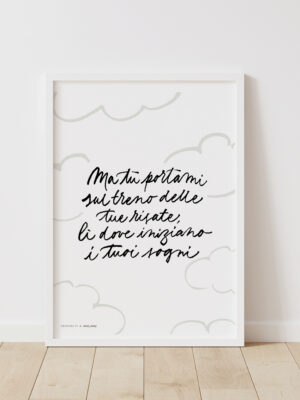 Ma tu portami
sul treno delle
tue risate,
lì dove iniziano
i tuoi sogni